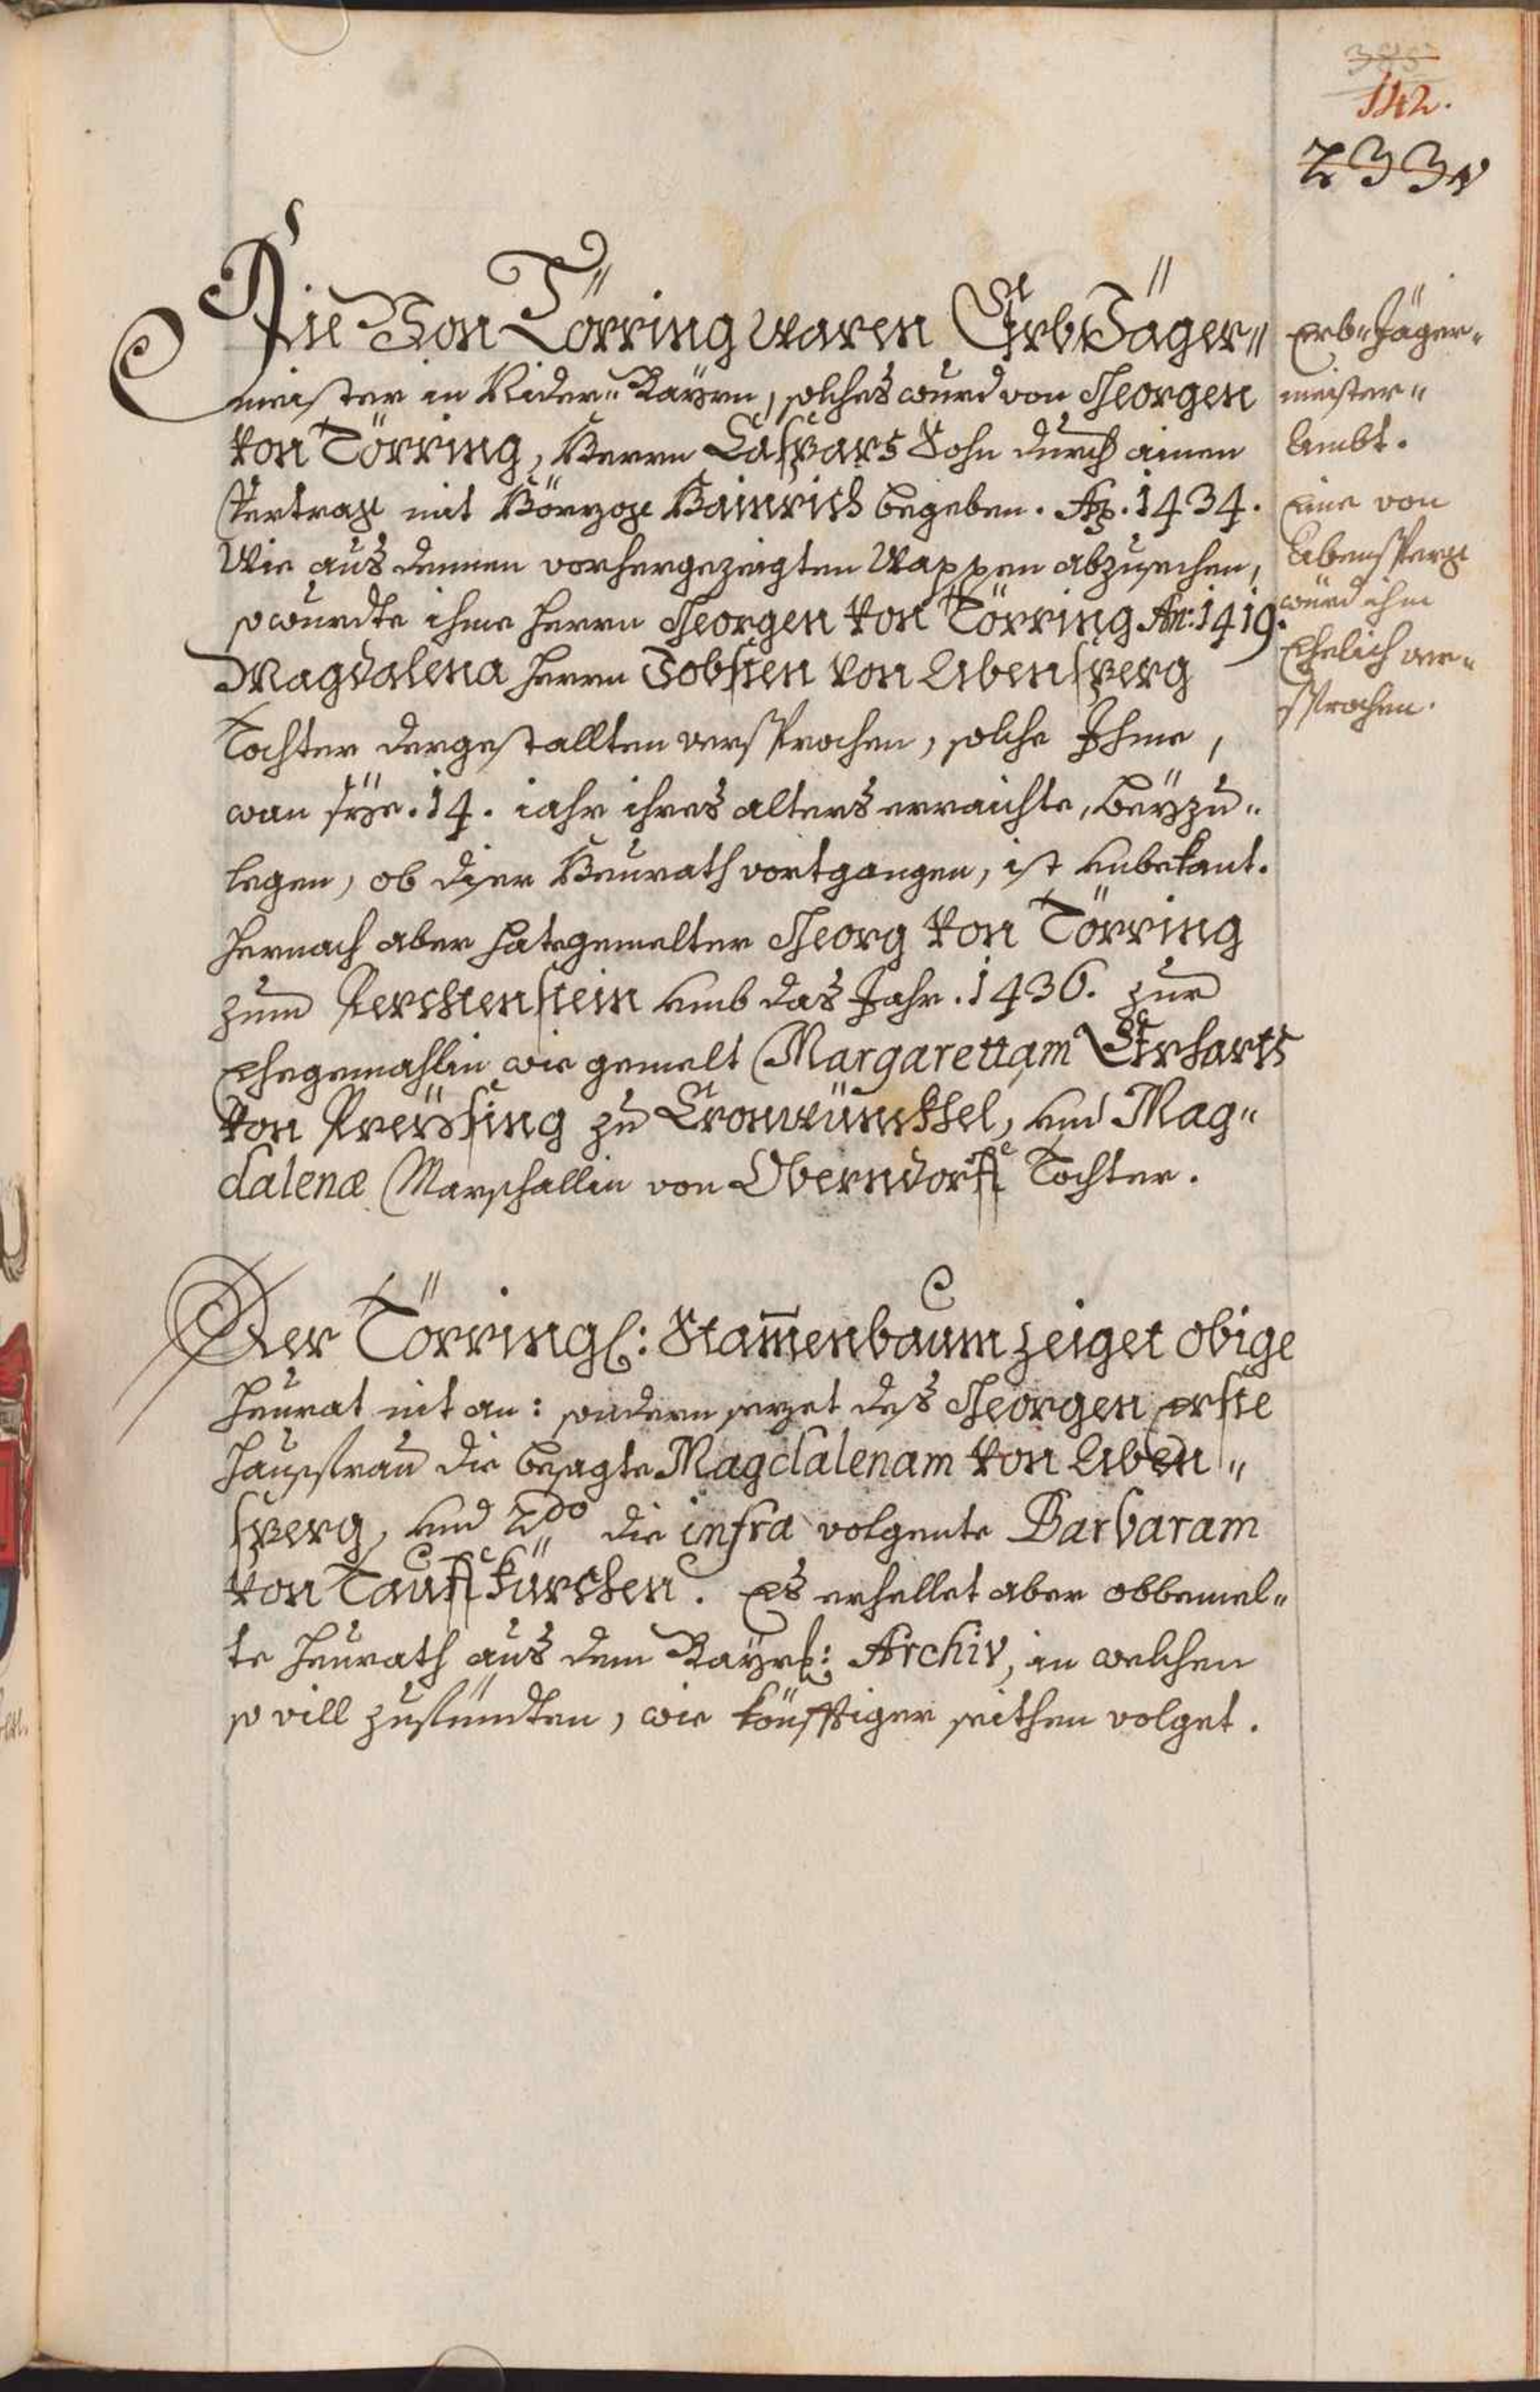 385
142.
233v
Die Von Törring waren ErbJäger„
meister in Nider„Bayrn, solches wurd von Georgen
von Törring, Herrn Caspars Sohn durch ainen
Vertrag mit Hörzog Hainrich begeben. Ao. 1434.
Wie aus dennen vorhergezeigten Wappen abzusechen,
so wurdte ihme Herrn Georgen von Törring An: 1419.
Magdalena Herrn Jobsten von Abensperg
Tochter dergestallten versprochen, solche Ihme,
wan sye .14. iahr ihres alters erraichte, beyzu„
legen, ob diser Heurath vortgangen, ist unbekant.
Hernach aber hat gemelter Georg von Törring
zum Perchenstein umb das Jahr .1436. zur
Ehegemahlin wie gemelt Margarettam Erharts
von Preÿsing zu Cronwünckhel, und Mag„
dalenæ Marschallin von Oberndorff Tochter.
Der Törringl: Stam̄enbaum zeiget obige
Heurat nit an: sondern sezet des Georgen erste
Hausfrau die besagte Magdalenam von Aben„
sperg, und 2do die infra volgente Barbaram
von Tauffkürchen. Es erhellet aber obbemel„
te Heurath aus dem Bayrl: Archiv, in welchen
so vill zufündten, wie könfftiger seithen volget.
Erb„Jäger„
meister„
Ambt.
Eine von
Abensperg
würd ihm
Ehelich ver„
sprochen.